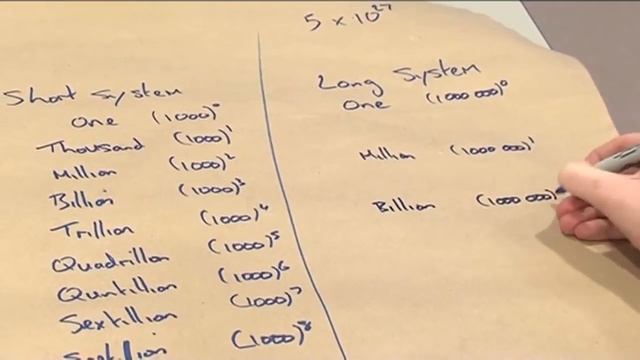 5 × 10²⁷
Short System
One (1000)⁰
Thousand (1000)¹
Million (1000)²
Billion (1000)³
Trillion (1000)⁴
Quadrillon (1000)⁵
Quntillion (1000)⁶
Sextillion (1000)⁷
(1000)⁸
Long System
One (1000 000)⁰
Million (1000 000)¹
Billion (1000 000)